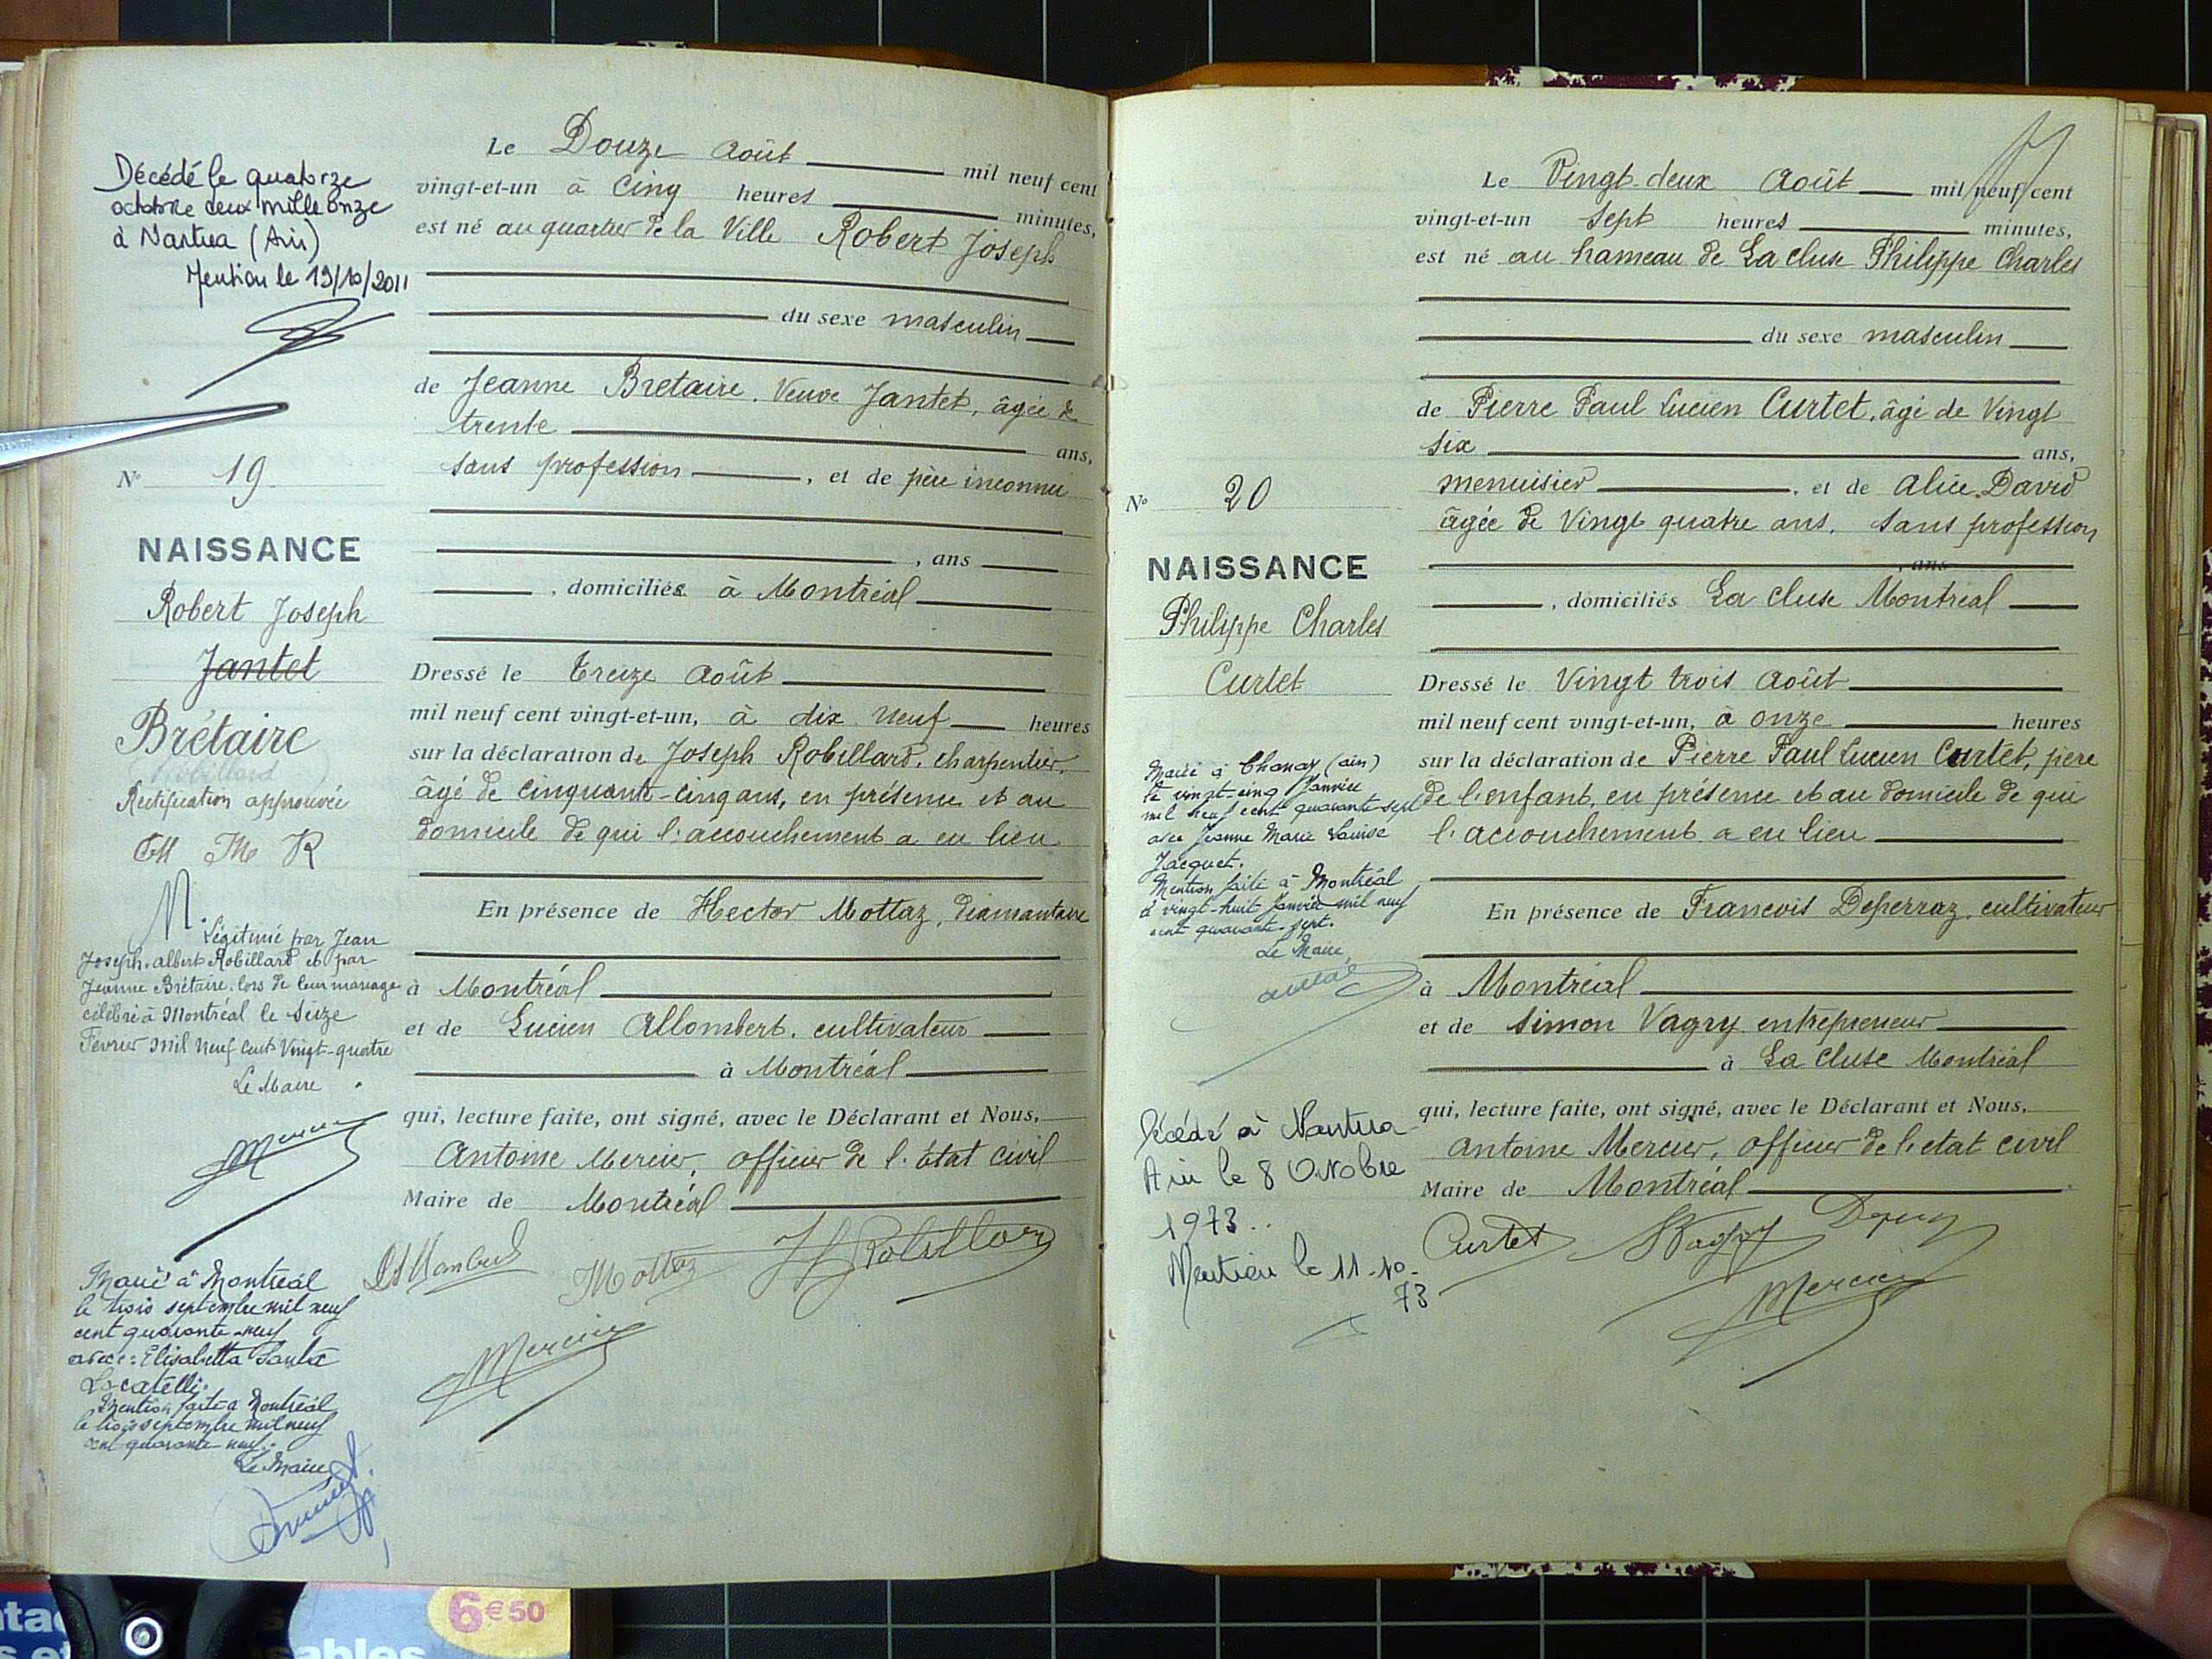 Décédé le quatorze
octobre deux mille onze
à Nantua (Ain)
Mention le 19/10/2011
N° 19
NAISSANCE
Robert Joseph
Jantet
Brétaire
Robillard
Rectification approuvée
M R
Légitimé par Jean
Joseph. Albert Robillard et par
Jeanne Brétaire. lors de leur mariage
célébré à Montréal le Seize
Février mil neuf cent Vingt-quatre
Le Maire
Mercier
Marié à Montréal
le trois septembre mil neuf
cent quarante-neuf
avec: Elisabetta
Locatelli.
Mention faite à Montréal
le trois septembre mil neuf
cent quarante-neuf.
Le Maire
Le Douze Août mil neuf cent
vingt-et-un à Cinq heures minutes,
est né au quartier de la Ville Robert Joseph
du sexe masculin
de Jeanne Bretaire. Veuve Jantet, âgée de
trente ans,
sans profession , et de père inconnu
, ans
, domiciliée à Montréal
Dressé le treize Août
mil neuf cent vingt-et-un, à dix neuf heures
sur la déclaration de Joseph Robillard. charpentier,
âgé de cinquante-cinq ans, en présence et au
domicile de qui l'accouchement a eu lieu
En présence de Hector Mottaz, diamantaire
à Montréal
et de Lucien Allombert. cultivateur
à Montréal
qui, lecture faite, ont signé, avec le Déclarant et Nous,
Antoine Mercier, officier de l'état civil
Maire de Montréal
Mottaz Robillard
Mercier
N° 20
NAISSANCE
Philippe Charles
Curtet
Marié à Chanay (ain)
le vingt-cinq Janvier
mil neuf cent quarante sept
avec Jeanne Marie Louise
Jacquet.
Mention faite à Montréal
le vingt-huit Janvier mil neuf
cent quarante-sept.
Le Maire,
Décédé à Nantua
Ain le 8 Octobre
1973..
Mention le 11-10-
73
Le Vingt-deux Août mil neuf cent
vingt-et-un sept heures minutes,
est né au hameau de La cluse Philippe Charles
du sexe masculin
de Pierre Paul Lucien Curtet, âgé de Vingt
six ans,
menuisier , et de Alice David
âgée de Vingt quatre ans, sans profession
, ans
, domiciliés La cluse Montréal
Dressé le Vingt trois Août
mil neuf cent vingt-et-un, à onze heures
sur la déclaration de Pierre Paul Lucien Curtet, père
de l'enfant, en présence et au domicile de qui
l'accouchement a eu lieu
En présence de Francois Deperraz, cultivateur
à Montréal
et de Simon Vagry entrepreneur
à La cluse Montréal
qui, lecture faite, ont signé, avec le Déclarant et Nous,
Antoine Mercier, officier de l'état civil
Maire de Montréal
Curtet Vagry
Mercier
6€50